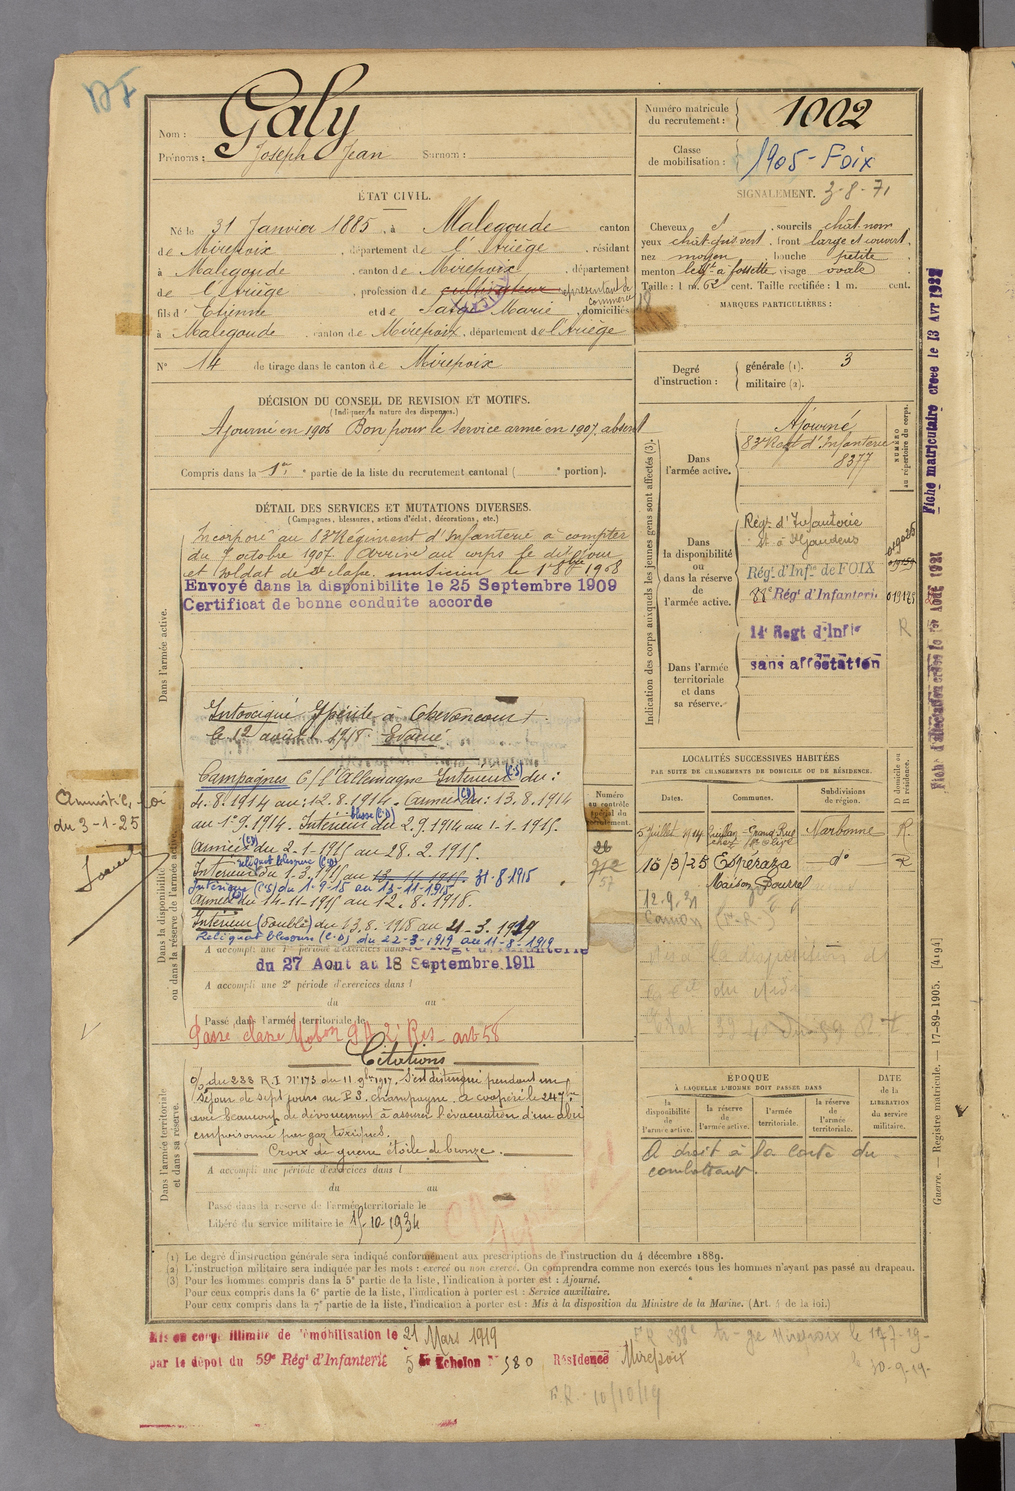 DF
Nom : Galy
Prénoms : Joseph Jean Surnom :
Numéro matricule du recrutement : 1002
Classe de mobilisation : 1905 - Foix
ÉTAT CIVIL.
Né le 31 Janvier 1885, à Malegoude canton
de Mirepoix, département de l'Ariège, résidant
à Malegoude, canton de Mirepoix, département
de l'Ariège, profession de cultivateur représentant de commerce
fils d' Etienne et de Marie, domiciliés
à Malegoude canton de Mirepoix, département de l'Ariège
N° 14 de tirage dans le canton de Mirepoix
SIGNALEMENT. 3-8-71
Cheveux et, sourcils chât. noir
yeux chât. gris vert, front large et couvert,
nez moyen, bouche petite
menton à fossette, visage ovale
Taille : 1 m. 62 cent. Taille rectifiée : 1 m. cent.
MARQUES PARTICULIÈRES :
Degré d'instruction : générale (1). 3
militaire (2).
DÉCISION DU CONSEIL DE REVISION ET MOTIFS.
(Indiquer la nature des dispenses.)
Ajourné en 1906 Bon pour le Service armé en 1907. absent
Compris dans la 1re partie de la liste du recrutement cantonal ( portion).
DÉTAIL DES SERVICES ET MUTATIONS DIVERSES.
(Campagnes, blessures, actions d'éclat, décorations, etc.)
Dans l'armée active.
Incorporé au 83e Régiment d'Infanterie à compter
du 7 octobre 1907 arrivé au corps le dit jour
et soldat de 2e classe. musicien le 1908
Envoyé dans la disponibilite le 25 Septembre 1909
Certificat de bonne conduite accorde
Intoxiqué Ypérite à Chevoncourt
le 12 août 1918 Evacué
Campagnes c/ l'Allemagne Intérieur (CS) du :
4.8.1914 au : 12.8.1914. Armée (CD) du : 13.8.1914
au 1°9.1914. Intérieur blessé (CD) du 2.9.1914 au 1.1.1915.
Armée (CD) du 2-1-1915 au 28.2.1915.
Intérieur reliquat blessure (CD) du 1.3.1915 au 13-11-1915 31-8-1915
Intérieur (CS) du 1-9-15 au 13-11-1915
Armée du 14-11-1915 au 12.8.1918.
Intérieur (Double) du 13.8.1918 au 21-3.1919
Reliquat blessure (C.D) du 22-3-1919 au 11-8-1919
Amnistie, Loi
du 3-1-25
Dans la disponibilité ou dans la réserve de l'armée active.
A accompli une 1re période d'exercices dans
du 27 Aout au 18 Septembre 1911
A accompli une 2e période d'exercices dans l
du au
Passé dans l'armée territoriale le
Passé classe Mobon art 58
Citations
Dans l'armée territoriale et dans sa réserve.
O/ du 288 R.I N°173 du 11 9bre 1917. S'est distingué pendant un
séjour de sept jours au P.S. champagne. a coopéré le 24 7bre
avec beaucoup de dévouement à assurer l'évacuation d'un abri
empoisonné par gaz toxiques.
Croix de guerre étoile de bronze.
A accompli une période d'exercices dans l
du au
Passé dans la réserve de l'armée territoriale le
Libéré du service militaire le 15-10-1934
Numéro au contrôle spécial du recrutement.
Indication des corps auxquels les jeunes gens sont affectés (3).
NUMÉRO au répertoire du corps.
Dans l'armée active.
Ajourné
83e Regt d'Infanterie
8377
Dans la disponibilité ou dans la réserve de l'armée active.
Régt d'Infanterie
St Gaudens
Régt d'Infie de FOIX
Régt d'Infanterie
R
Dans l'armée territoriale et dans sa réserve.
14e Regt d'Infie
sans affectation
LOCALITÉS SUCCESSIVES HABITÉES
PAR SUITE DE CHANGEMENTS DE DOMICILE OU DE RÉSIDENCE.
Dates. Communes. Subdivisions de région. D domicile ou R résidence.
5 Juillet 1914 Quillan - Grand Rue Narbonne R
15/3/25 Espéraza d° R
Maison Bourrel
12.9.31
ÉPOQUE
À LAQUELLE L'HOMME DOIT PASSER DANS
la disponibilité de l'armée active. la réserve de l'armée active. l'armée territoriale. la réserve de l'armée territoriale.
DATE de la LIBÉRATION du service militaire.
A droit à la carte du
combattant.
Fiche matriculaire creee le 13 Avr 1927
Guerre. — Registre matricule. — 17-89-1905. [4194]
(1) Le degré d'instruction générale sera indiqué conformément aux prescriptions de l'instruction du 4 décembre 1889.
(2) L'instruction militaire sera indiquée par les mots : exercé ou non exercé. On comprendra comme non exercés tous les hommes n'ayant pas passé au drapeau.
(3) Pour les hommes compris dans la 5e partie de la liste, l'indication à porter est : Ajourné.
Pour ceux compris dans la 6e partie de la liste, l'indication à porter est : Service auxiliaire.
Pour ceux compris dans la 7e partie de la liste, l'indication à porter est : Mis à la disposition du Ministre de la Marine. (Art. 4 de la loi.)
Mis en congé illimité de démobilisation le 21 Mars 1919
par le dépot du 59e Régt d'Infanterie 5 Echelon N° 580 Résidence Mirepoix
30-9-19-
F.R. - 10/10/19